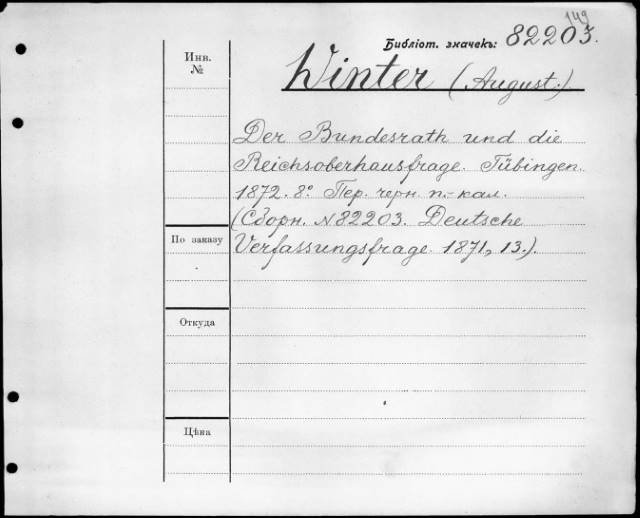 149
Библіот. значекъ: 82203.
Инв.
№
Winter (August.)
Der Bundesrath und die
Reichsoberhausfrage. Tübingen.
1872. 8º. Пер. черн. п.-кал.
(Сборн. №82203. Deutsche
Verfassungsfrage. 1871, 13.).
По заказу
Откуда
Цѣна